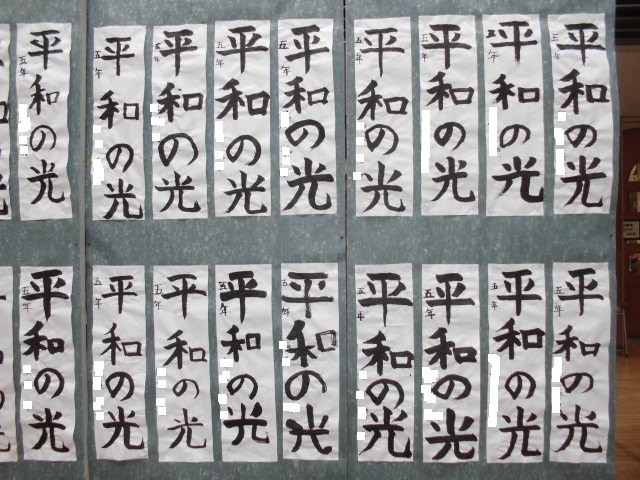 平和の光
五年
平和の光
五年
平和の光
五年
平和の光
五年
平和の光
五年
平和の光
五年
平和の光
五年
平和の光
五年
平和の光
五年
平和の光
五年
平和の光
五年
平和の光
五年
平和の光
五年
平和の光
五年
平和の光
五年
平和の光
五年
平和の光
五年
平和の光
五年